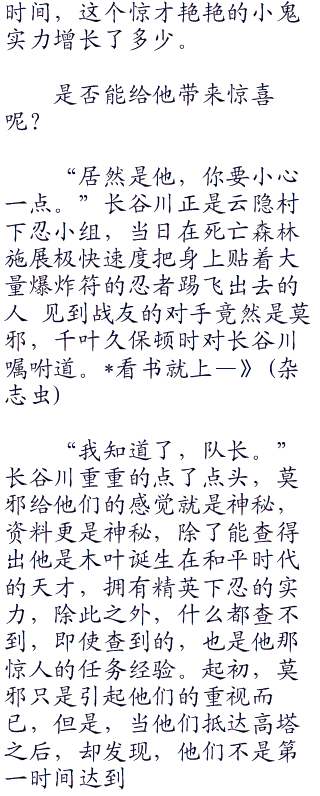 时间，这个惊才艳艳的小鬼
实力增长了多少。
是否能给他带来惊喜
呢？
“居然是他，你要小心
一点。” 长谷川正是云隐村
下忍小组，当日在死亡森林
施展极快速度把身上贴着大
量爆炸符的忍者踢飞出去的
人 见到战友的对手竟然是莫
邪，千叶久保顿时对长谷川
嘱咐道。*看书就上—》（杂
志虫）
“我知道了，队长。”
长谷川重重的点了点头，莫
邪给他们的感觉就是神秘，
资料更是神秘，除了能查得
出他是木叶诞生在和平时代
的天才，拥有精英下忍的实
力，除此之外，什么都查不
到，即使查到的，也是他那
惊人的任务经验。起初，莫
邪只是引起他们的重视而
已，但是，当他们抵达高塔
之后，却发现，他们不是第
一时间达到